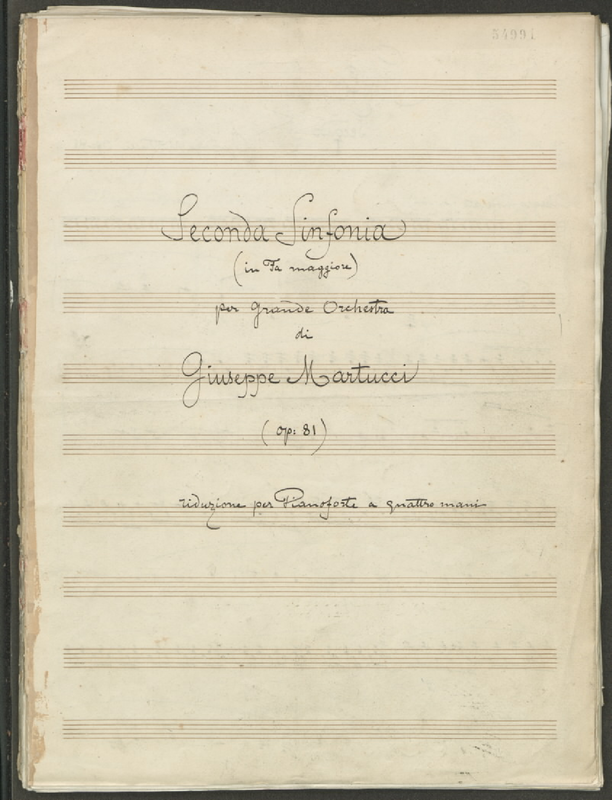 54991
Seconda Sinfonia
(in Fa maggiore)
per grande Orchestra
di
Giuseppe Martucci
(op: 81)
riduzione per Pianoforte a quattro mani